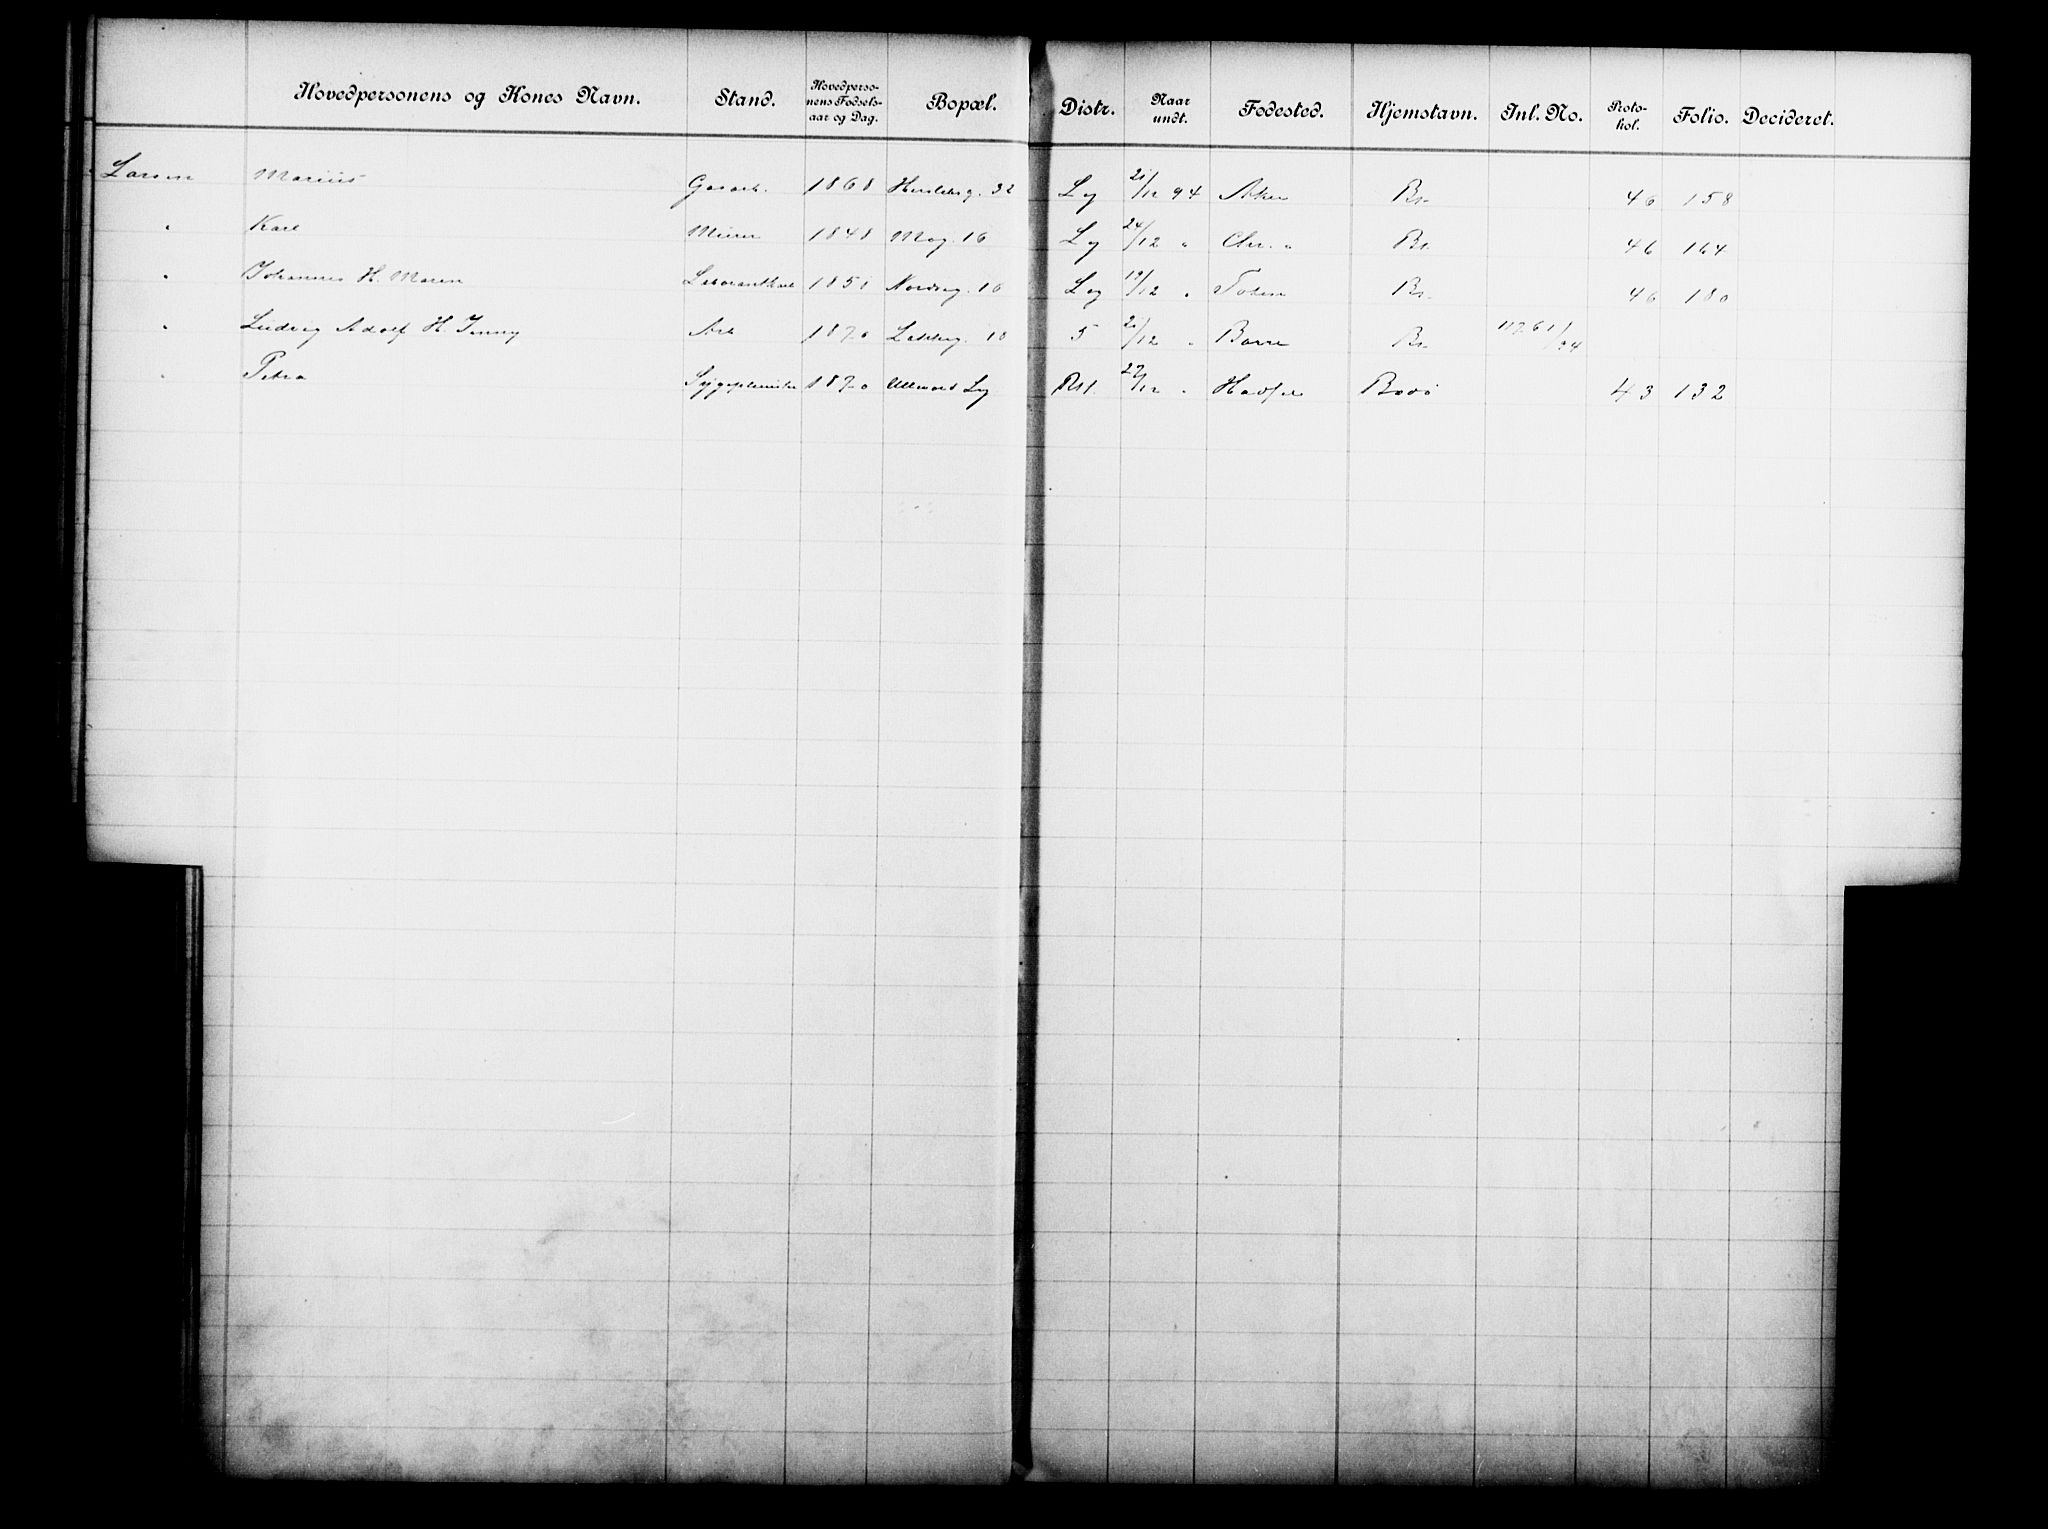 Hovedpersonens og Kones Navn. Stand. Hovedperso-nens Fødsels-aar og Dag. Bopæl. Distr. Naar undt. Fødested. Hjemstavn. Inl. No. Proto-kol. Folio. Decideret.
Larsen Marius Gasarb. 1868 32 Lg 21/12 94 Aker Bs. 46 158
" Karl Murer 1848 Mog. 16 Lg 24/12 " Chr. " Bs. 46 164
" Johannes H. Maren 1851 Nordreg. 16 Lg 19/12 " Toten Bs. 46 180
" Ludvig Adolf H. Jenny Arb 1870 Lakkeg. 18 5 21/12 " Borre Bs. 11761/94
" Petra Sygepleierske 1870 Ullevold Sy Rst. 27/12 " Hadsel Bodø 43 132